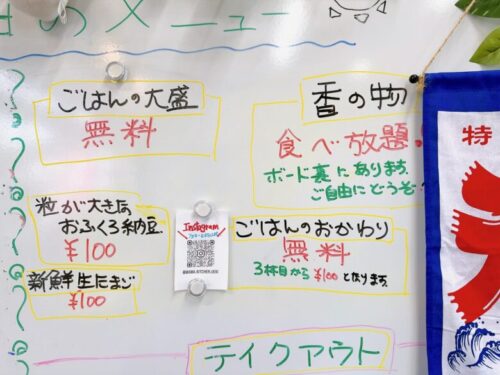 のメニュー
ごはんの大盛
無料
香の物
食べ放題!
ボード裏にあります。
ご自由にどうぞ
粒が大きな
おふくろ納豆
¥100
新鮮生たまご
¥100
Instagram
ごはんのおかわり
無料
3杯目から¥100となります。
テイクアウト
特